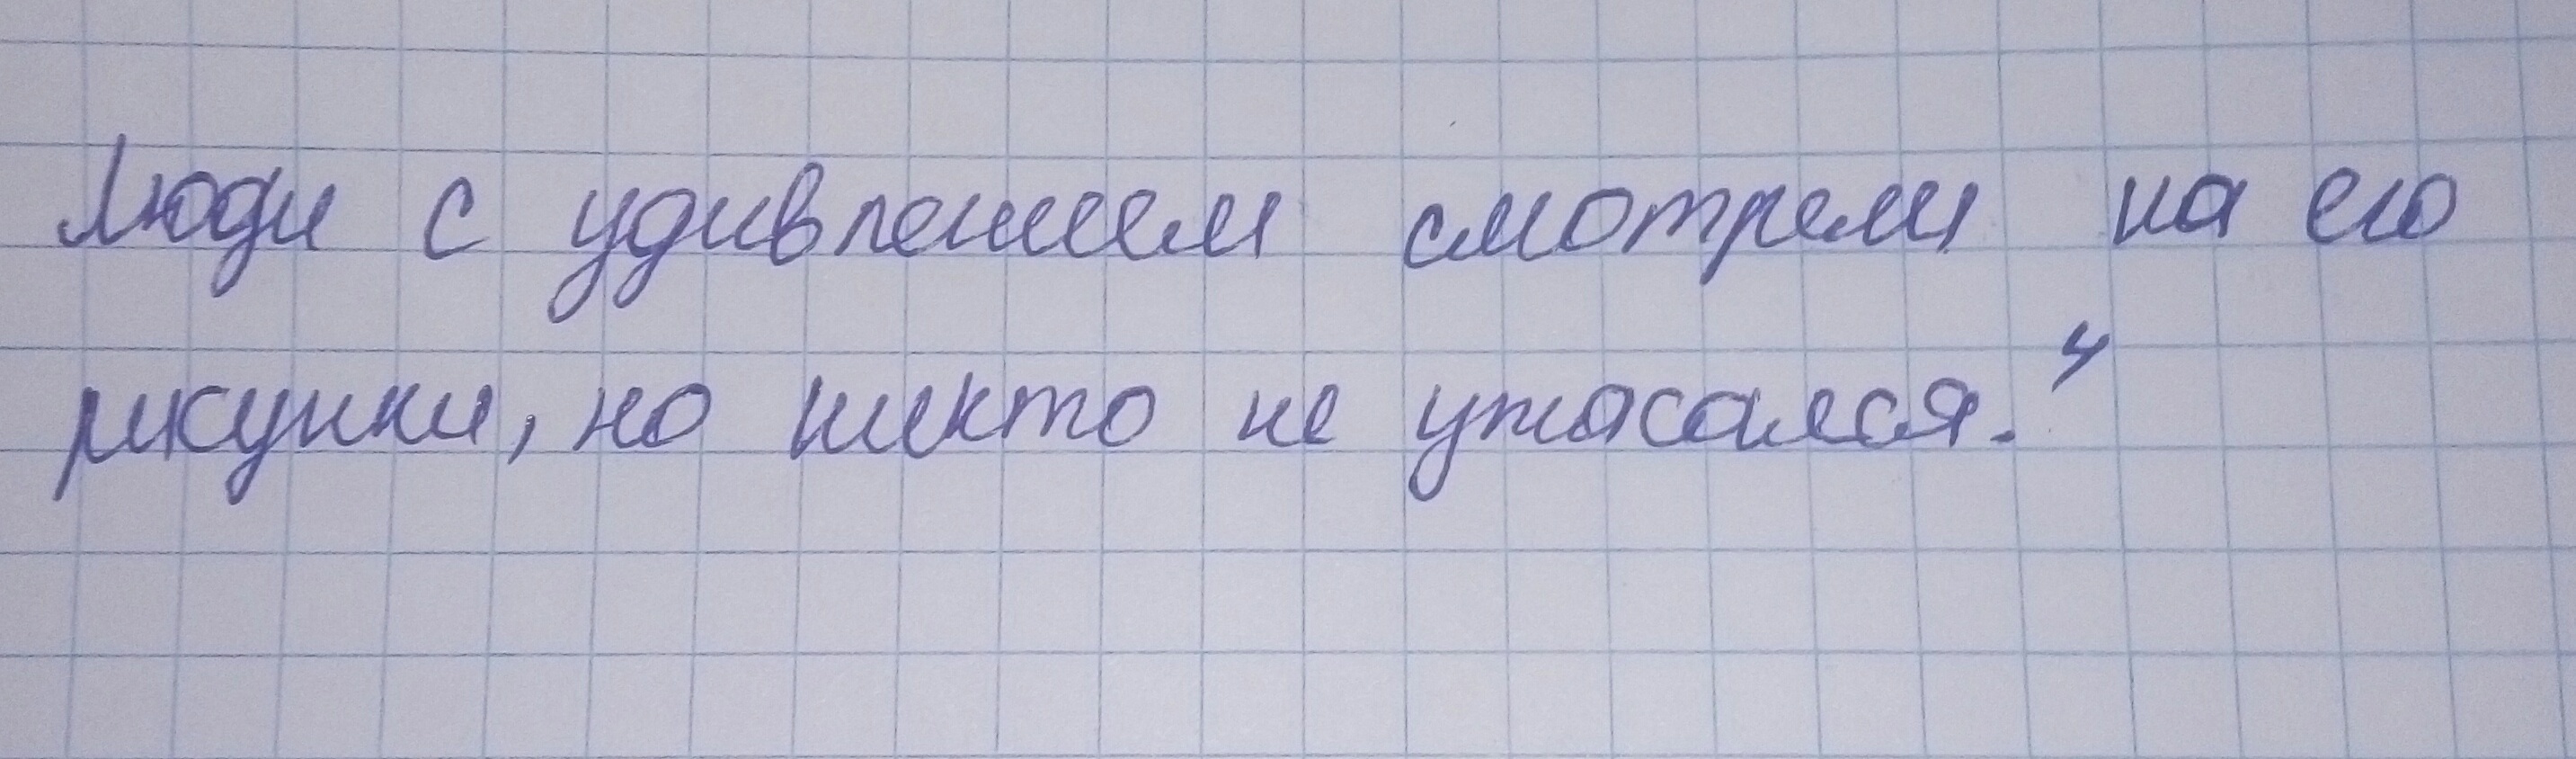 Люди с удивлением смотрели на его
рисунки, но никто не ужасался."